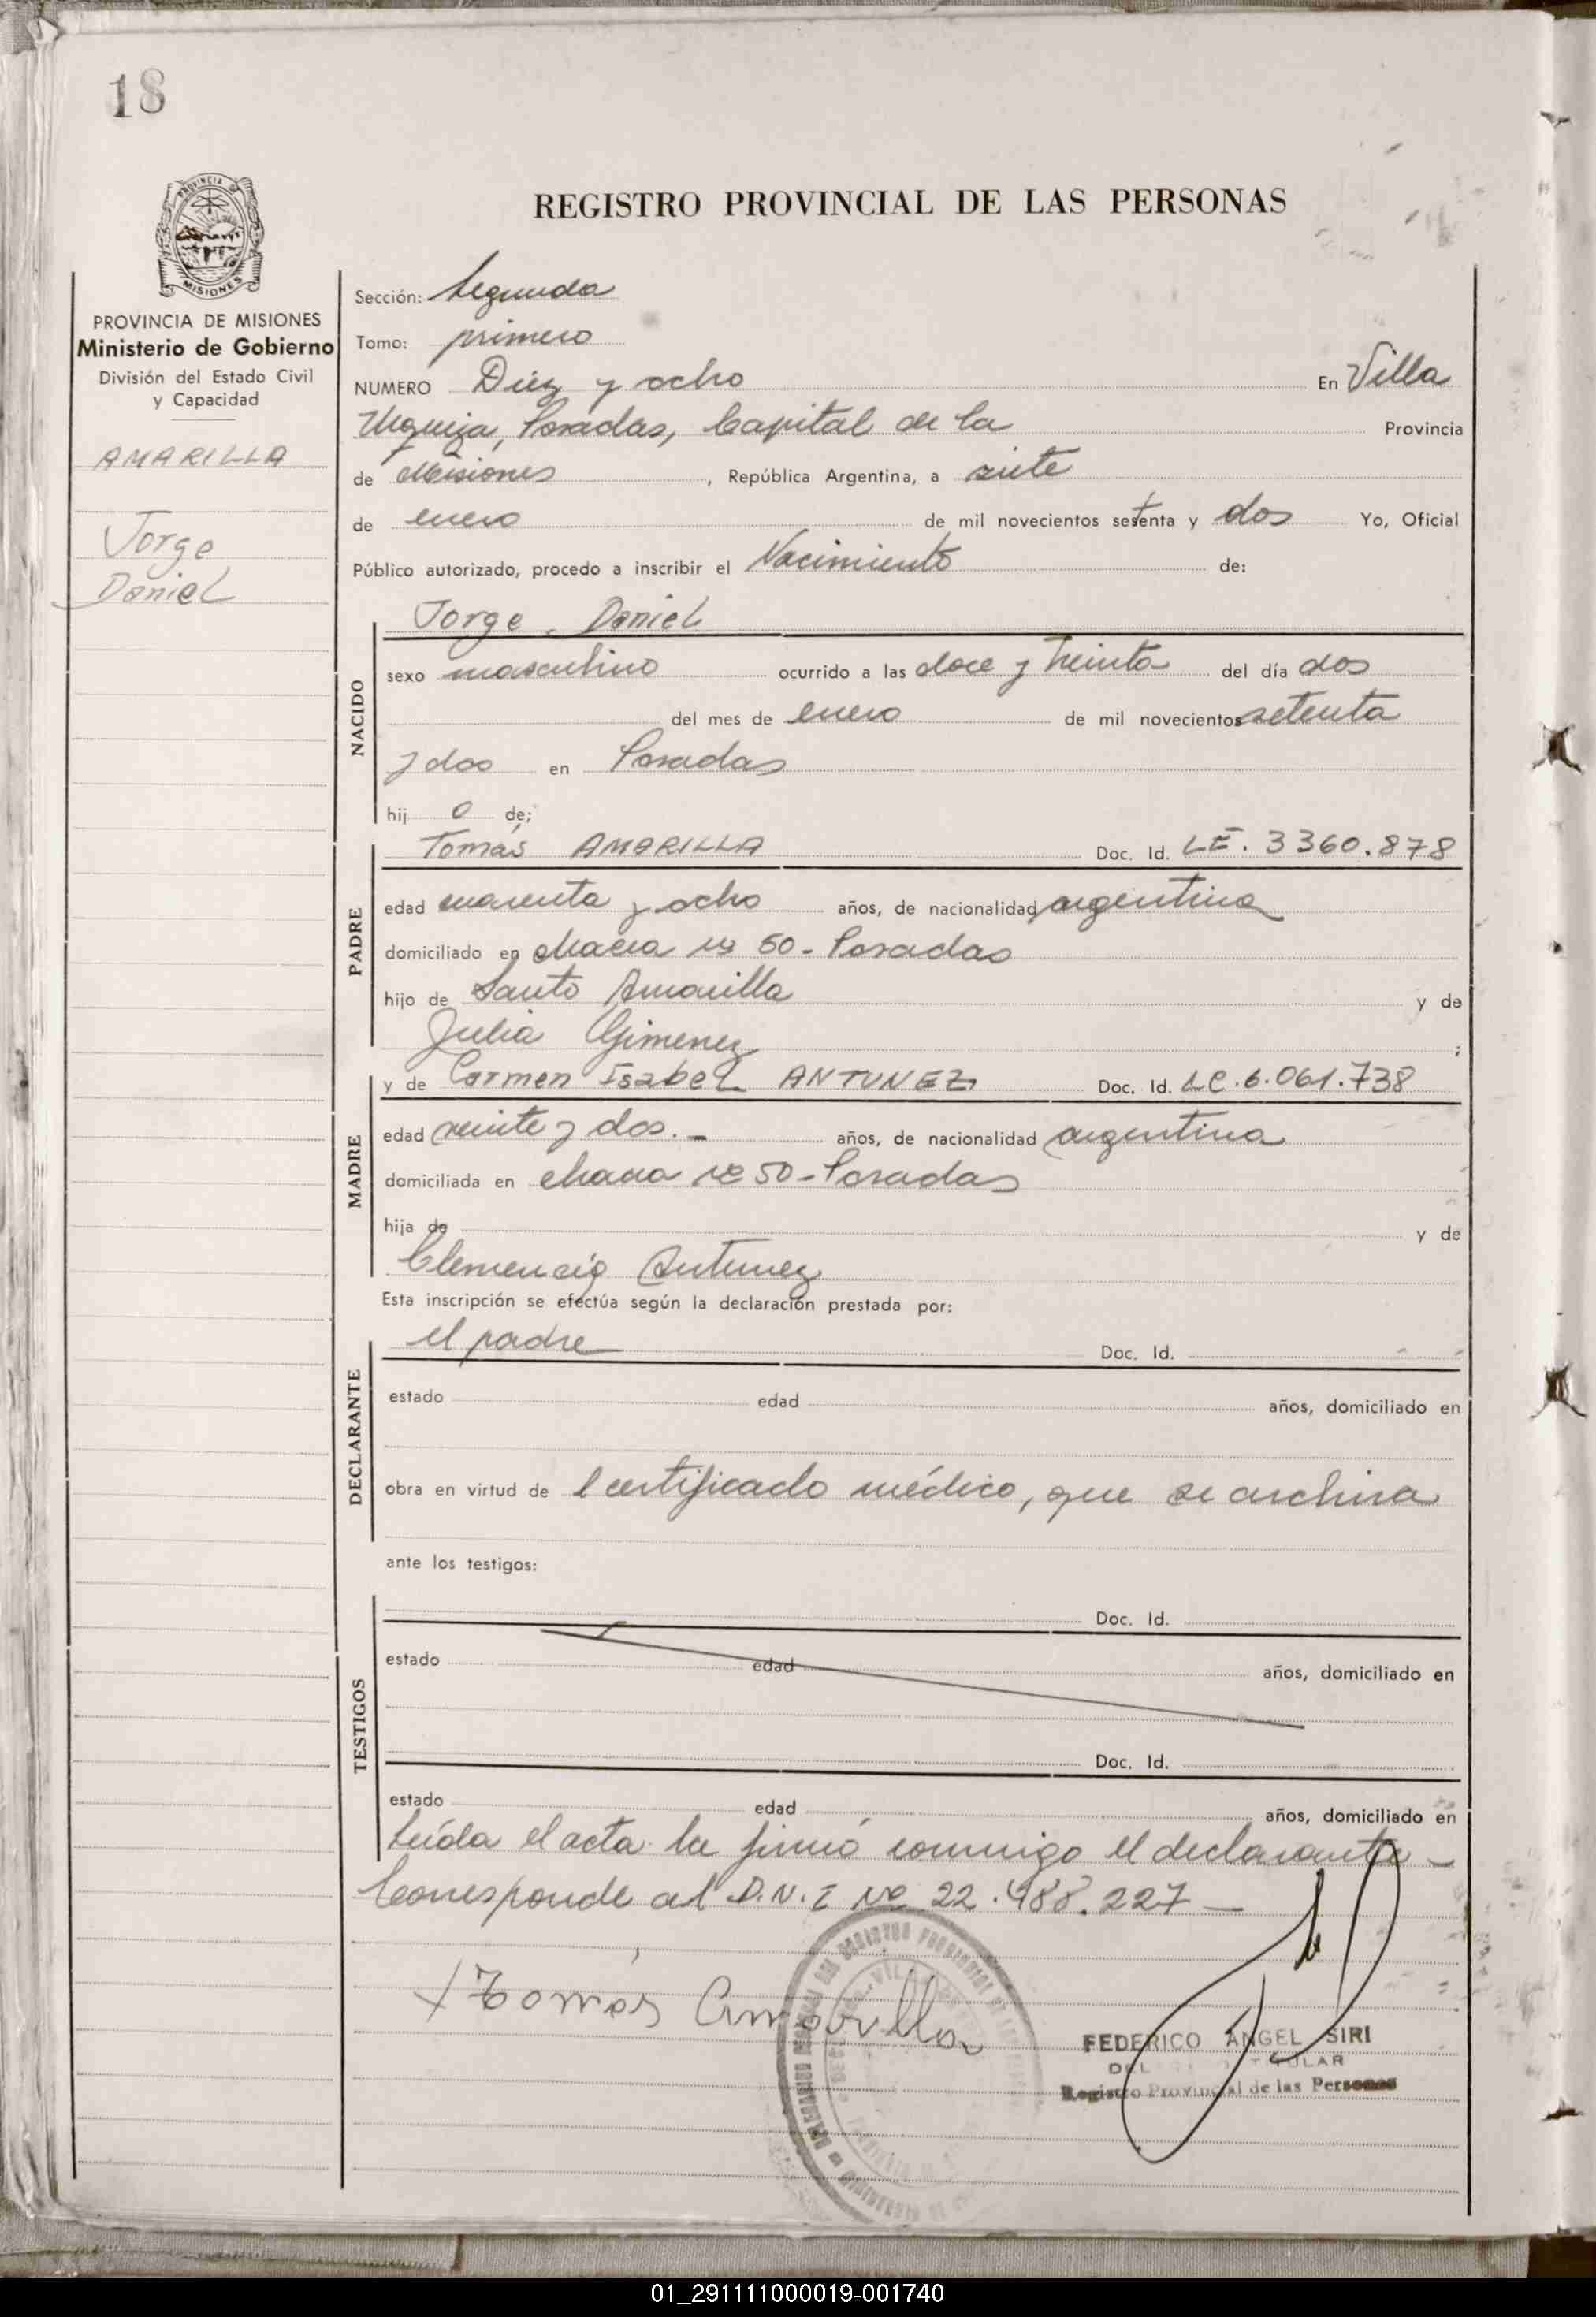 18
PROVINCIA DE
MISIONES
REGISTRO PROVINCIAL DE LAS PERSONAS
PROVINCIA DE MISIONES
Ministerio de Gobierno
División del Estado Civil
y Capacidad
AMARILLA
Jorge
Daniel
Sección: Segunda
Tomo: primero
NUMERO Diez y ocho En Villa
Urquiza, Posadas, Capital de la Provincia
de Misiones, República Argentina, a siete
de enero de mil novecientos setenta y dos Yo, Oficial
Público autorizado, procedo a inscribir el Nacimiento de:
NACIDO
Jorge Daniel
sexo masculino ocurrido a las doce y treinta del día dos
del mes de enero de mil novecientos setenta
y dos en Posadas
hij o de;
PADRE
Tomás AMARILLA Doc. Id. LE. 3360.878
edad cuarenta y ocho años, de nacionalidad argentina
domiciliado en chacra 50 - Posadas
hijo de Santo Amarilla y de
Julia Gimenez ;
MADRE
y de Carmen Isabel ANTUNEZ Doc. Id. LC. 6.061.738
edad veinte y dos.- años, de nacionalidad argentina
domiciliada en chacra 50 - Posadas
hija de y de
Clemencia Antunez
Esta inscripción se efectúa según la declaración prestada por:
DECLARANTE
el padre Doc. Id.
estado edad años, domiciliado en
obra en virtud de l certificado médico, que se archiva
ante los testigos:
TESTIGOS
Doc. Id.
estado edad años, domiciliado en
Doc. Id.
estado edad años, domiciliado en
Leída el acta la firmó conmigo el declarante -
Corresponde al D.N.I No 22.488.227 -
Tomás Amarilla
FEDERICO ANGEL SIRI
Registro Provincial de las Personas
01_291111000019-001740